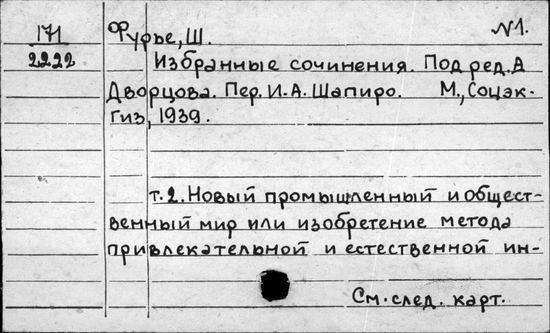 171 Фурье, Ш. №1.
2222 Избранные сочинения. Под ред. А
Дворцова. Пер. И.А. Шапиро. М., Соцэк-
гиз, 1939.
т. 2. Новый промышленный и общест-
венный мир или изобретение метода
привлекательной и естественной ин-
См. след. карт.